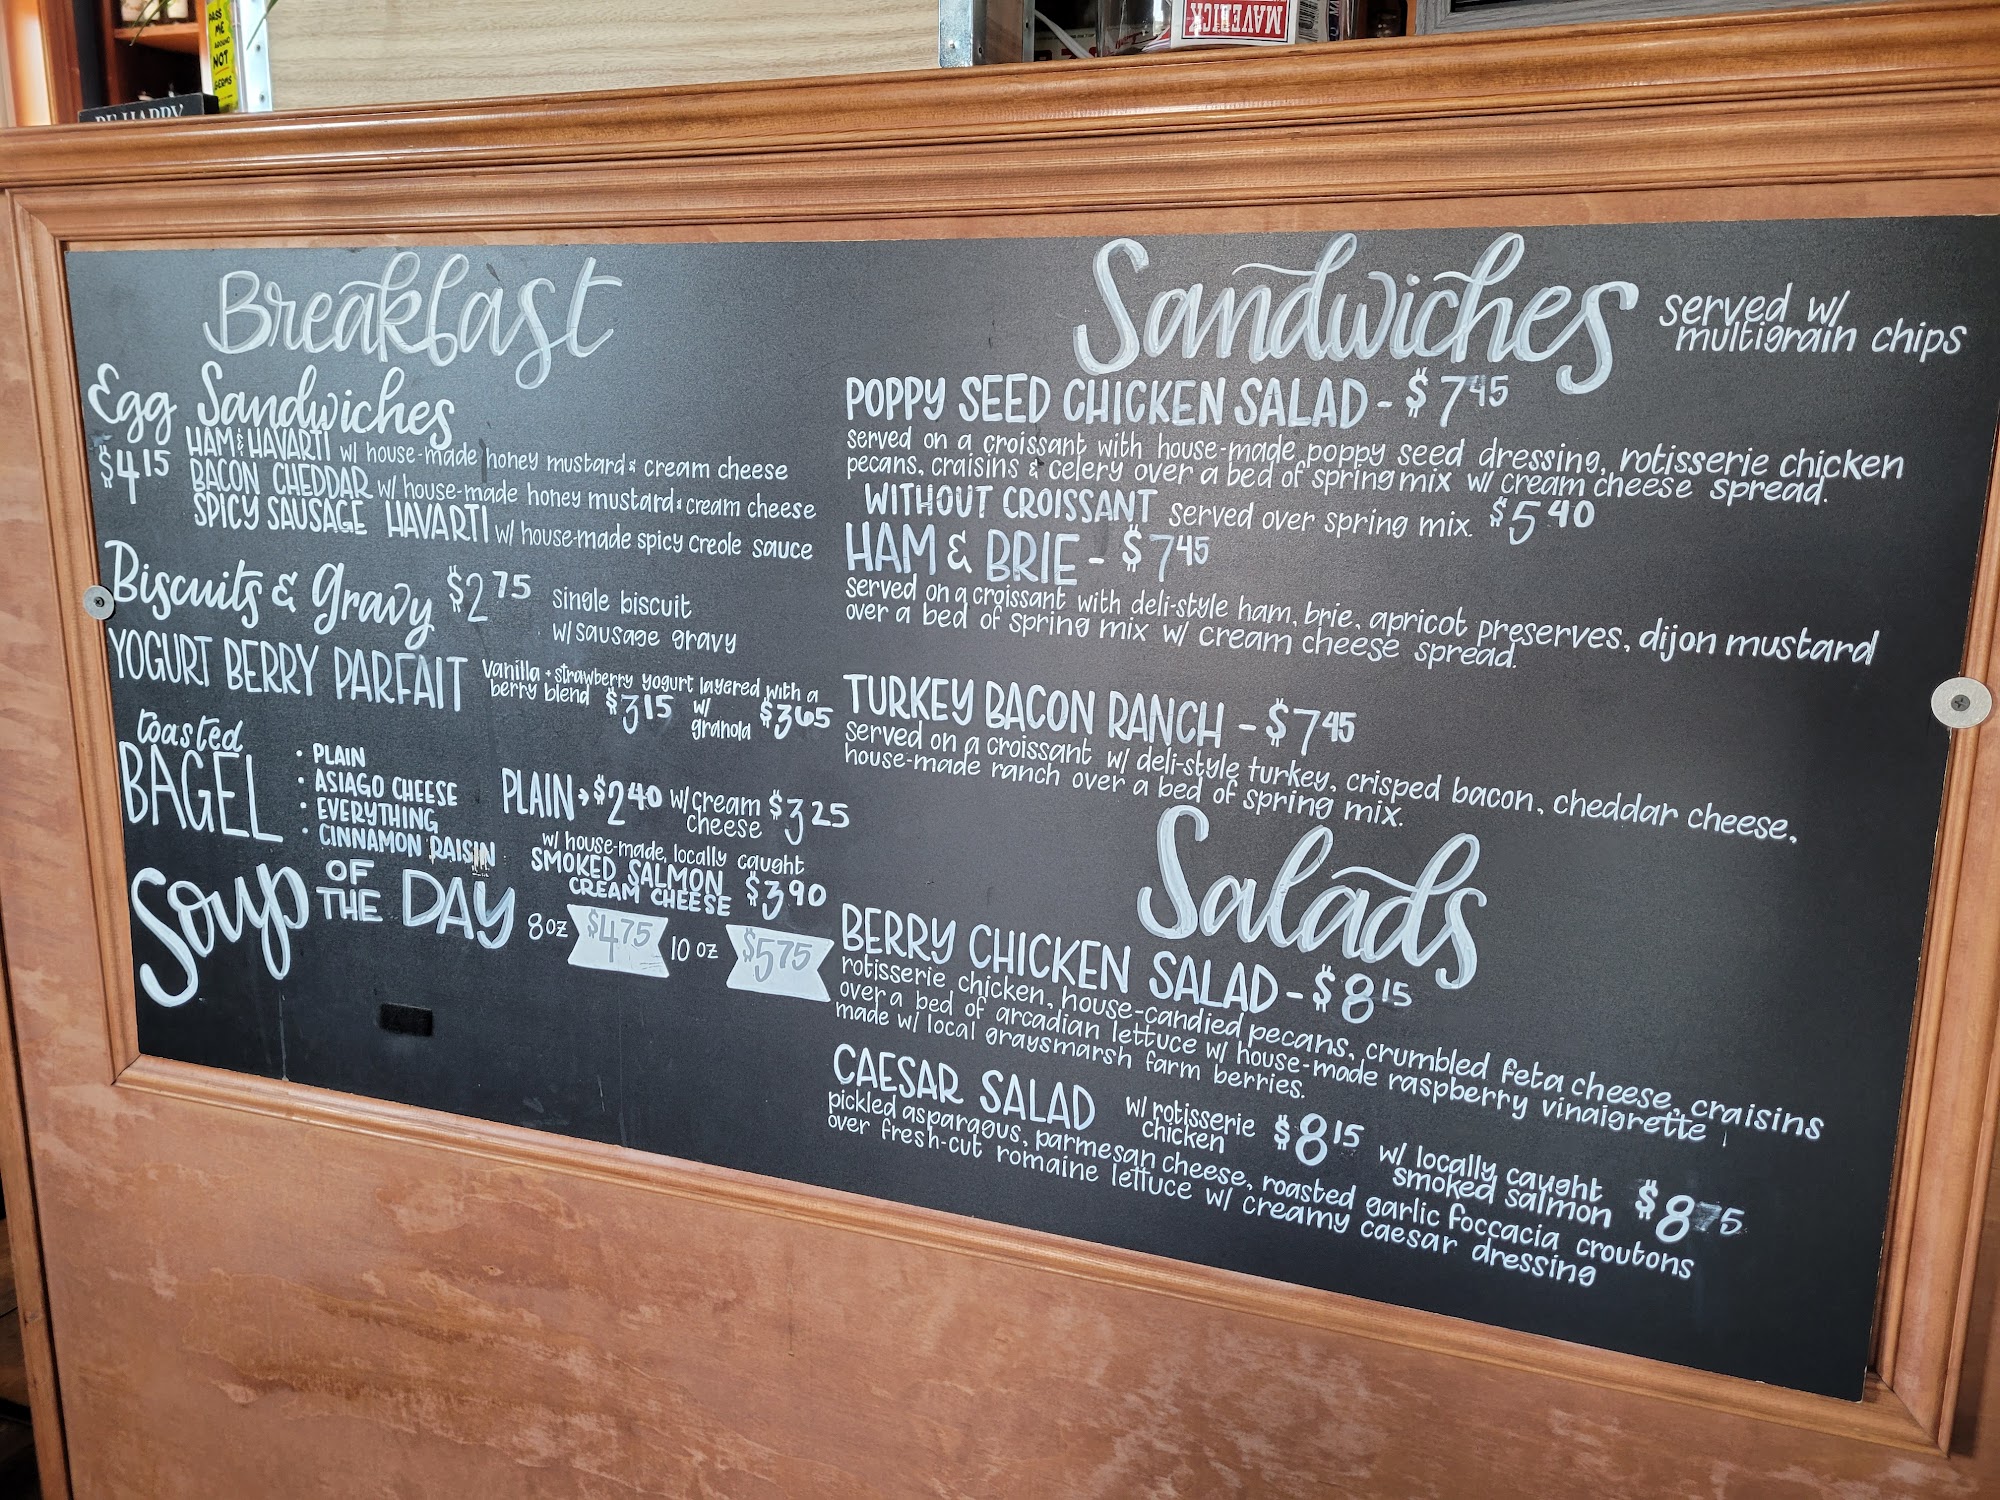 PASS
ME
AROUND
NOT
GERMS
BE HAPPY
MAVERICK
Breakfast
Egg Sandwiches
$4.15
HAM & HAVARTI w/ house-made honey mustard & cream cheese
BACON CHEDDAR w/ house-made honey mustard & cream cheese
SPICY SAUSAGE HAVARTI w/ house-made spicy creole sauce
Biscuits & Gravy $2.75 single biscuit
w/ sausage gravy
YOGURT BERRY PARFAIT vanilla + strawberry yogurt layered with a
berry blend $3.15 w/ granola $3.65
toasted
BAGEL
• PLAIN
• ASIAGO CHEESE
• EVERYTHING
• CINNAMON RAISIN
PLAIN → $2.40 w/ cream cheese $3.25
w/ house-made, locally caught
SMOKED SALMON
CREAM CHEESE $3.90
Soup OF THE DAY 8oz $4.75 10 oz $5.75
Sandwiches served w/
multigrain chips
POPPY SEED CHICKEN SALAD - $7.45
served on a croissant with house-made poppy seed dressing, rotisserie chicken
pecans, craisins & celery over a bed of spring mix w/ cream cheese spread.
WITHOUT CROISSANT served over spring mix. $5.40
HAM & BRIE - $7.45
served on a croissant with deli-style ham, brie, apricot preserves, dijon mustard
over a bed of spring mix w/ cream cheese spread.
TURKEY BACON RANCH - $7.45
served on a croissant w/ deli-style turkey, crisped bacon, cheddar cheese,
house-made ranch over a bed of spring mix.
Salads
BERRY CHICKEN SALAD - $8.15
rotisserie chicken, house-candied pecans, crumbled feta cheese, craisins
over a bed of arcadian lettuce w/ house-made raspberry vinaigrette
made w/ local graysmarsh farm berries.
CAESAR SALAD w/ rotisserie chicken $8.15 w/ locally caught smoked salmon $8.75
pickled asparagus, parmesan cheese, roasted garlic foccacia croutons
over fresh-cut romaine lettuce w/ creamy caesar dressing